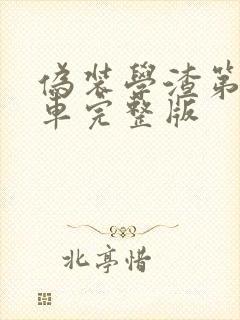 偽裝學渣第
車完整版
北亭惜